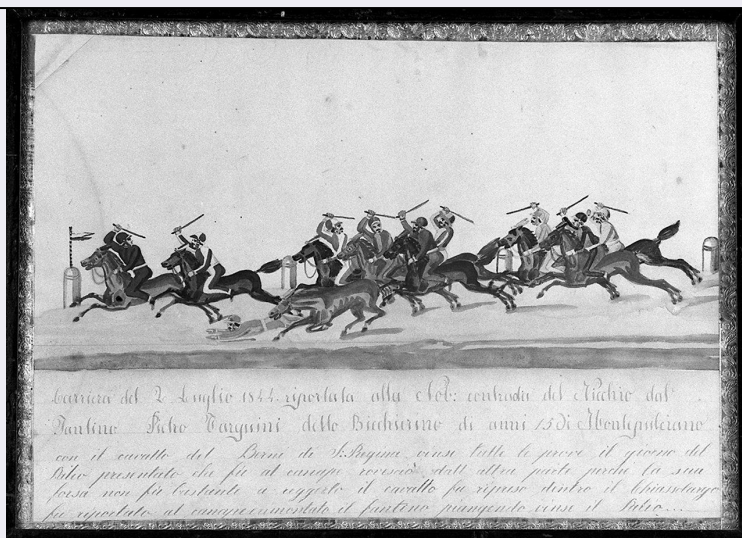 Carriera del 2 Luglio 1844 riportata alla Nob: contrada del Nicchio dal
Fantino Pietro Targuini detto Bicchierino di anni 15 di Montepulciano
con il cavallo del Berni di S: Regina, vinse tutte le prove il giorno del
Palio presentato che fu al canape rovesciò dall altra parte perchè la sua
forsa non fù bastante a reggerlo il cavallo fu ripreso dentro il Chiassolargo
fu riportato al canape rimontato il fantino piangendo vinse il Palio...